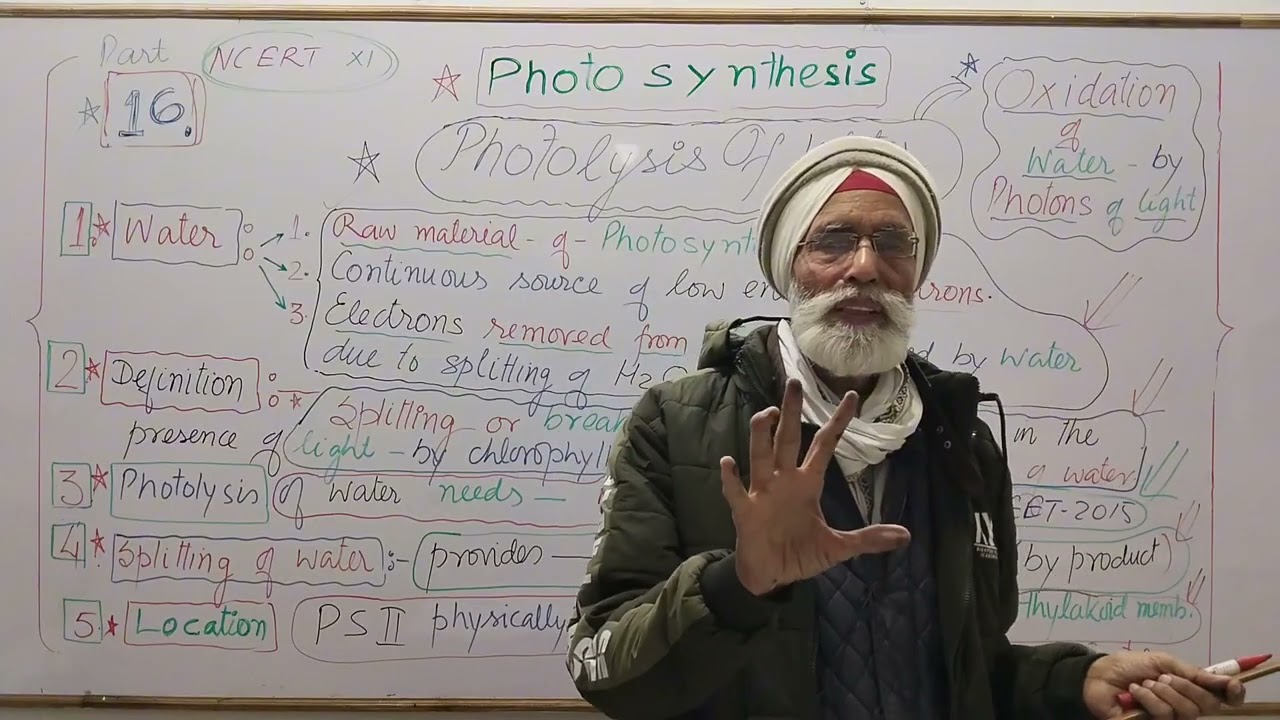 Part NCERT XI
16.
Photosynthesis
Photolysis Of
Oxidation
of
Water - by
Photons of light
1. Water
1. Raw material - of - Photosynt
2. Continuous source of low en rons.
3. Electrons removed from ed by water
due to splitting of H2O
2 Definition
Splitting or break in the
presence of light - by chlorophyll water
3 Photolysis of water needs - EET-2015
4. Splitting of water :- provides - (by product)
5. Location PS II physically Thylakoid memb.